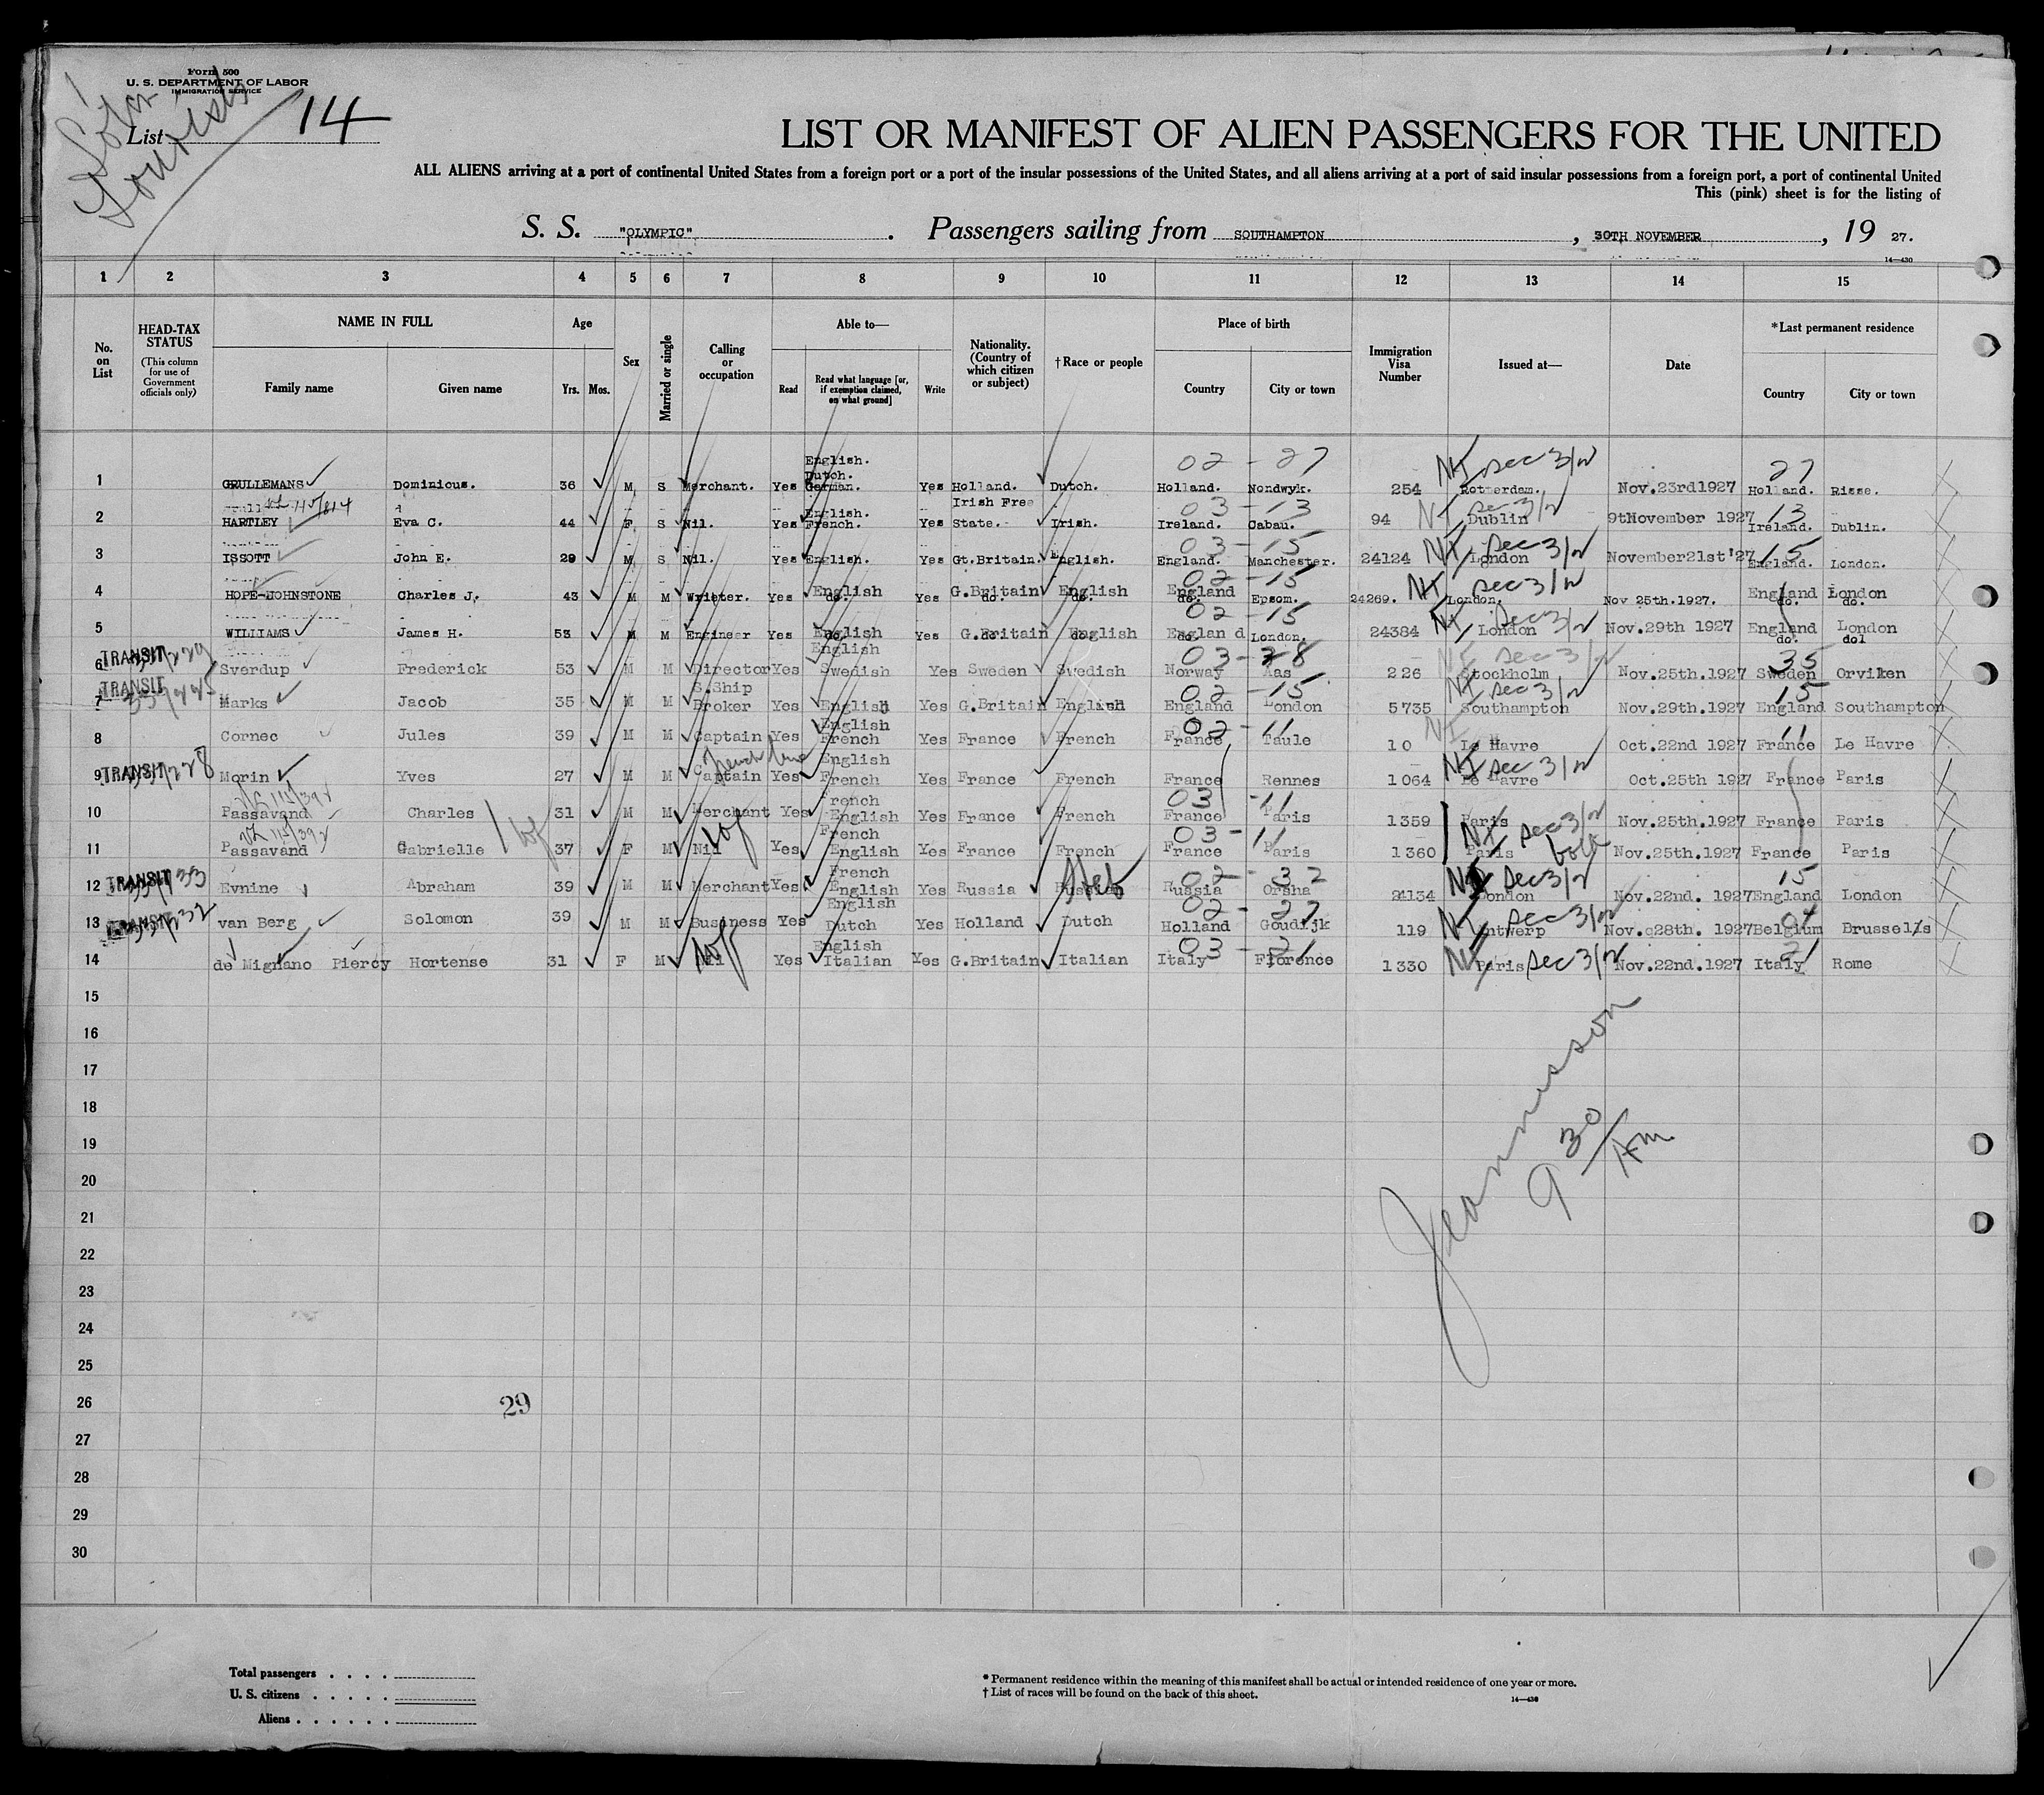 Form 500
U. S. DEPARTMENT OF LABOR
IMMIGRATION SERVICE
List 14
Tourists
LIST OR MANIFEST OF ALIEN PASSENGERS FOR THE UNITED
ALL ALIENS arriving at a port of continental United States from a foreign port or a port of the insular possessions of the United States, and all aliens arriving at a port of said insular possessions from a foreign port, a port of continental United
This (pink) sheet is for the listing of
S. S. "OLYMPIC". Passengers sailing from SOUTHAMPTON, 30TH NOVEMBER, 19 27.
14—430
1 2 3 4 5 6 7 8 9 10 11 12 13 14 15
No. on List
HEAD-TAX STATUS
(This column for use of Government officials only)
NAME IN FULL
Family name Given name
Age
Yrs. Mos.
Sex
Married or single
Calling or occupation
Able to—
Read Read what language [or, if exemption claimed, on what ground] Write
Nationality. (Country of which citizen or subject)
†Race or people
Place of birth
Country City or town
Immigration Visa Number
Issued at—
Date
*Last permanent residence
Country City or town
1 GRULLEMANS Dominicus. 36 M S Merchant. Yes English. Dutch. German. Yes Holland. Dutch. 02 - 27 Holland. Nondwyk. 254 NI Dec 3/2 Rotterdam. Nov.23rd1927 27 Holland. Risse.
2 HARTLEY Eva C. 44 F S Nil. Yes English. French. Yes Irish Free State. Irish. 03 - 13 Ireland. Cabau. 94 Dec 3/2 Dublin 9tNovember 1927 13 Ireland. Dublin.
3 ISSOTT John E. 29 M S Nil. Yes English. Yes Gt.Britain. English. 03 - 15 England. Manchester. 24124 Dec 3/2 London November21st'27 15 England. London.
4 HOPE-JOHNSTONE Charles J. 43 M M Wrieter. Yes English do. Yes G.Britain do. English do. 02 - 15 England do. Epsom. 24269. Dec 3/2 London. Nov 25th.1927. England do. London do.
5 WILLIAMS James H. 53 M M Engineer Yes English do. Yes G.Britain do. English do. 02 - 15 England do. London. 24384 Dec 3/2 London Nov.29th 1927 England do. London dol
6 TRANSIT Sverdup Frederick 53 M M Director Yes English Swedish Yes Sweden Swedish 03 - 38 Norway Aas 226 Dec 3/2 Stockholm Nov.25th.1927 35 Sweden Orviken
7 TRANSIT Marks Jacob 35 M M S.Ship Broker Yes English Yes G.Britain English 02 - 15 England London 5735 Dec 3/2 Southampton Nov.29th.1927 15 England Southampton
8 Cornec Jules 39 M M Captain Yes English French Yes France French 02 - 11 France Taule 10 Le Havre Oct.22nd 1927 11 France Le Havre
9 TRANSIT Morin Yves 27 M M French Line Captain Yes English French Yes France French France Rennes 1064 Dec 3/2 Le Havre Oct.25th 1927 France Paris
10 Passavand Charles 31 M M Merchant Yes French English Yes France French 03 - 11 France Paris 1359 Paris Nov.25th.1927 France Paris
11 Passavend Gabrielle 37 F M Nil Yes French English Yes France French 03 - 11 France Paris 1360 NI Dec 3/2 both Paris Nov.25th.1927 France Paris
12 TRANSIT Evnine Abraham 39 M M Merchant Yes French English Yes Russia Russian 02 - 32 Russia Orsha 24134 Dec 3/2 London Nov.22nd. 1927 15 England London
13 TRANSIT van Berg Solomon 39 M M Business Yes English Dutch Yes Holland Dutch 02 - 27 Holland Goudijk 119 Dec 3/2 Antwerp Nov.28th. 1927 04 Belgium Brussels
14 de Mignano Piercy Hortense 31 F M Nil Yes English Italian Yes G.Britain Italian 03 - 21 Italy Florence 1330 Dec 3/2 Paris Nov.22nd.1927 21 Italy Rome
15
16
17
18
19
20
21
22
23
24
25
26
27
28
29
30
9 30/AM
29
Total passengers
U. S. citizens
Aliens
* Permanent residence within the meaning of this manifest shall be actual or intended residence of one year or more.
† List of races will be found on the back of this sheet.
14—430